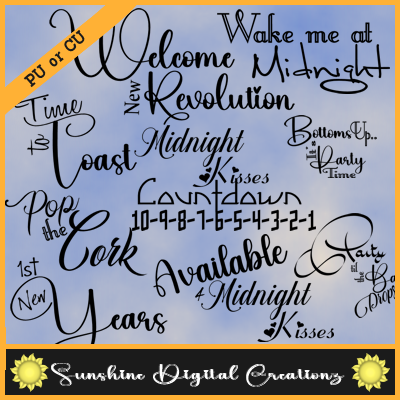 PU or CU
Welcome
Wake me at
Midnight
New
Revolution
Time
to
Toast
Midnight
Kisses
Bottoms Up..
It's
Party
Time
Countdown
10-9-8-7-6-5-4-3-2-1
Pop
the
Cork
Available
4 Midnight
Kisses
Party
til
the Ba
Drops
1st
New
Years
Sunshine Digital Creationz